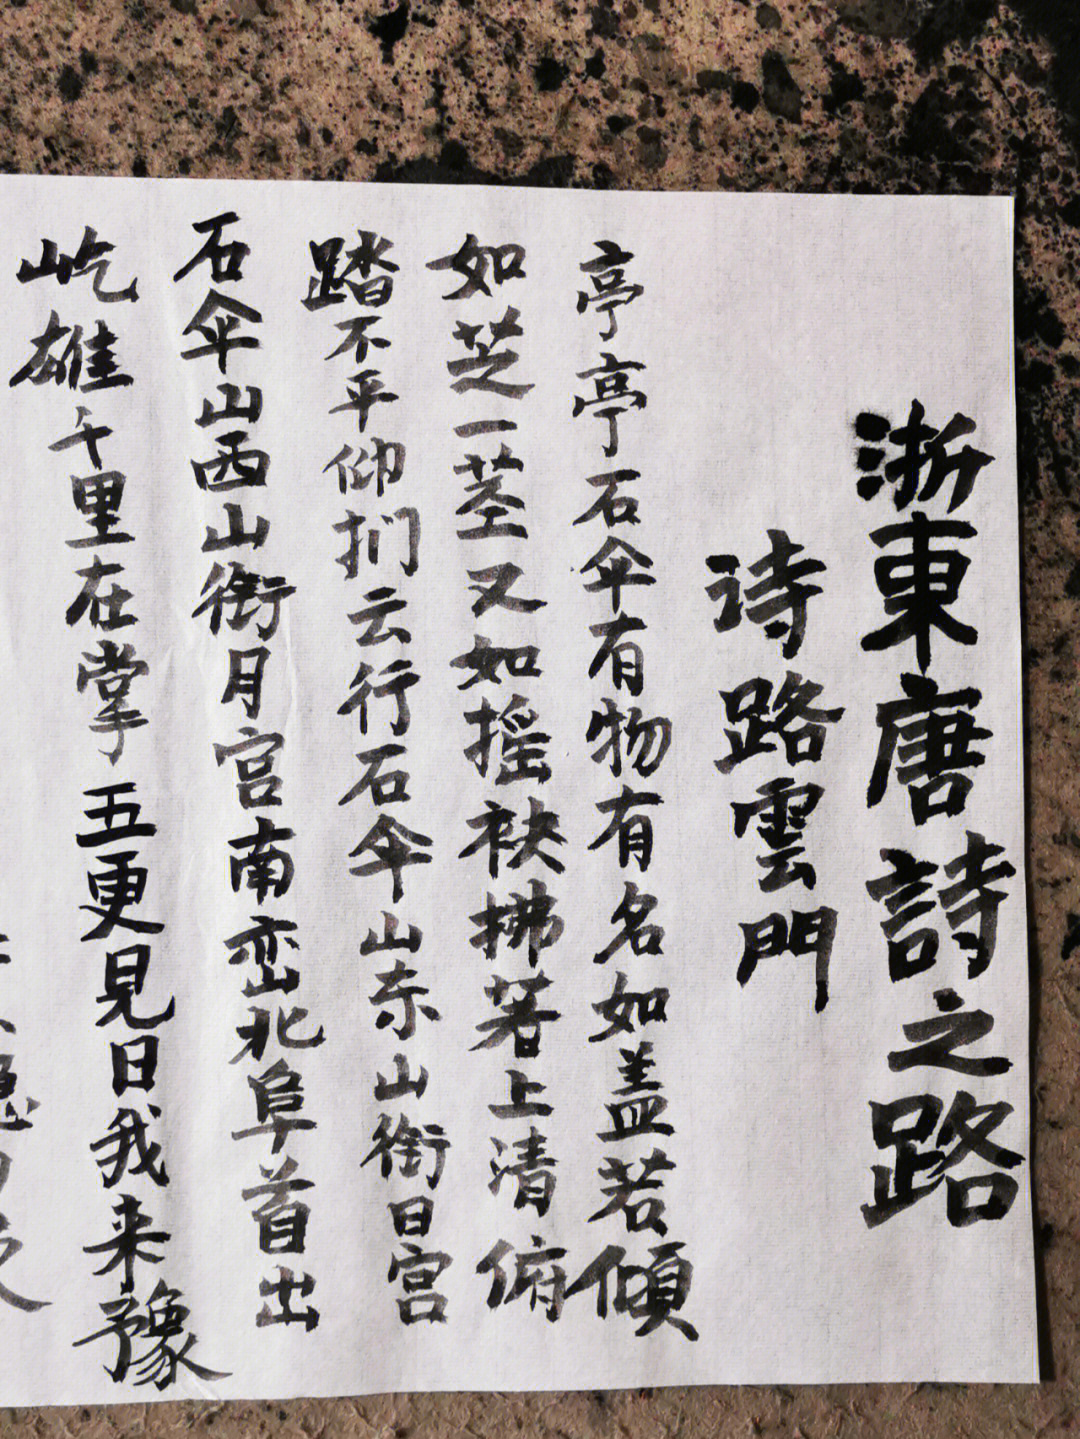 浙東唐詩之路
诗路雲門
亭亭石伞有物有名如盖若傾
如芝一茎又如摇袂拂著上清俯
踏不平仰扪云行石伞山东山衔日宫
石伞山西山衔月宫南峦北阜首出
屹雄千里在掌五更見日我来豫